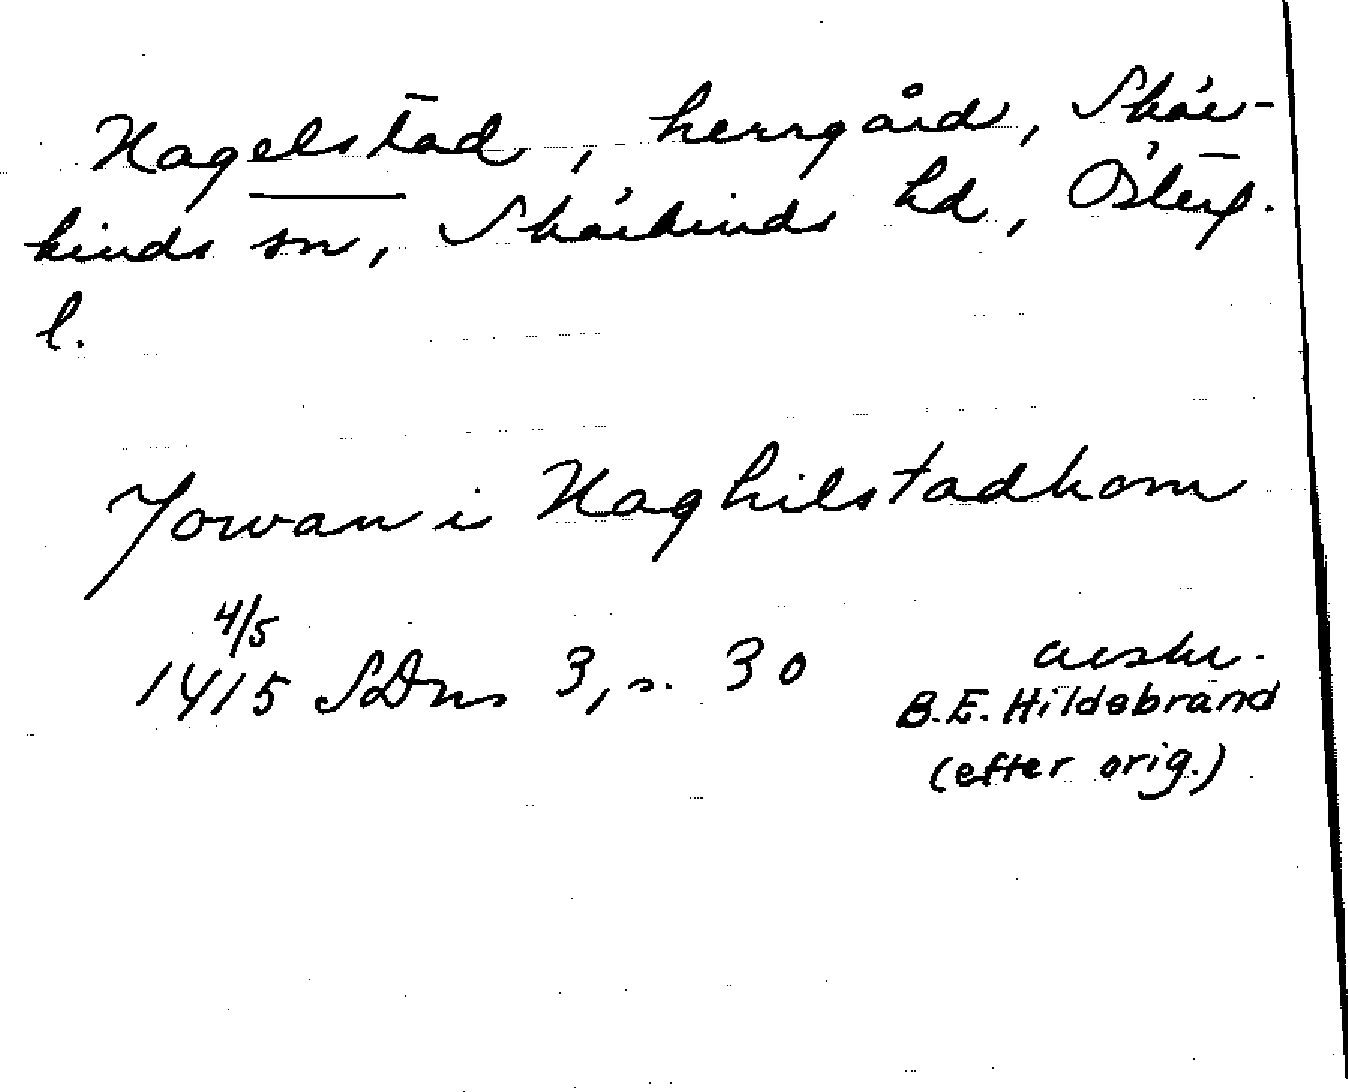 Nagelstad, herrgård, Skär-
kinds sn, Skärkinds hd, Österg.
l.
Jowan i Naghilstadhom
4/5
1415 SDns 3, s. 30 avskr.
B.E. Hildebrand
(efter orig.)